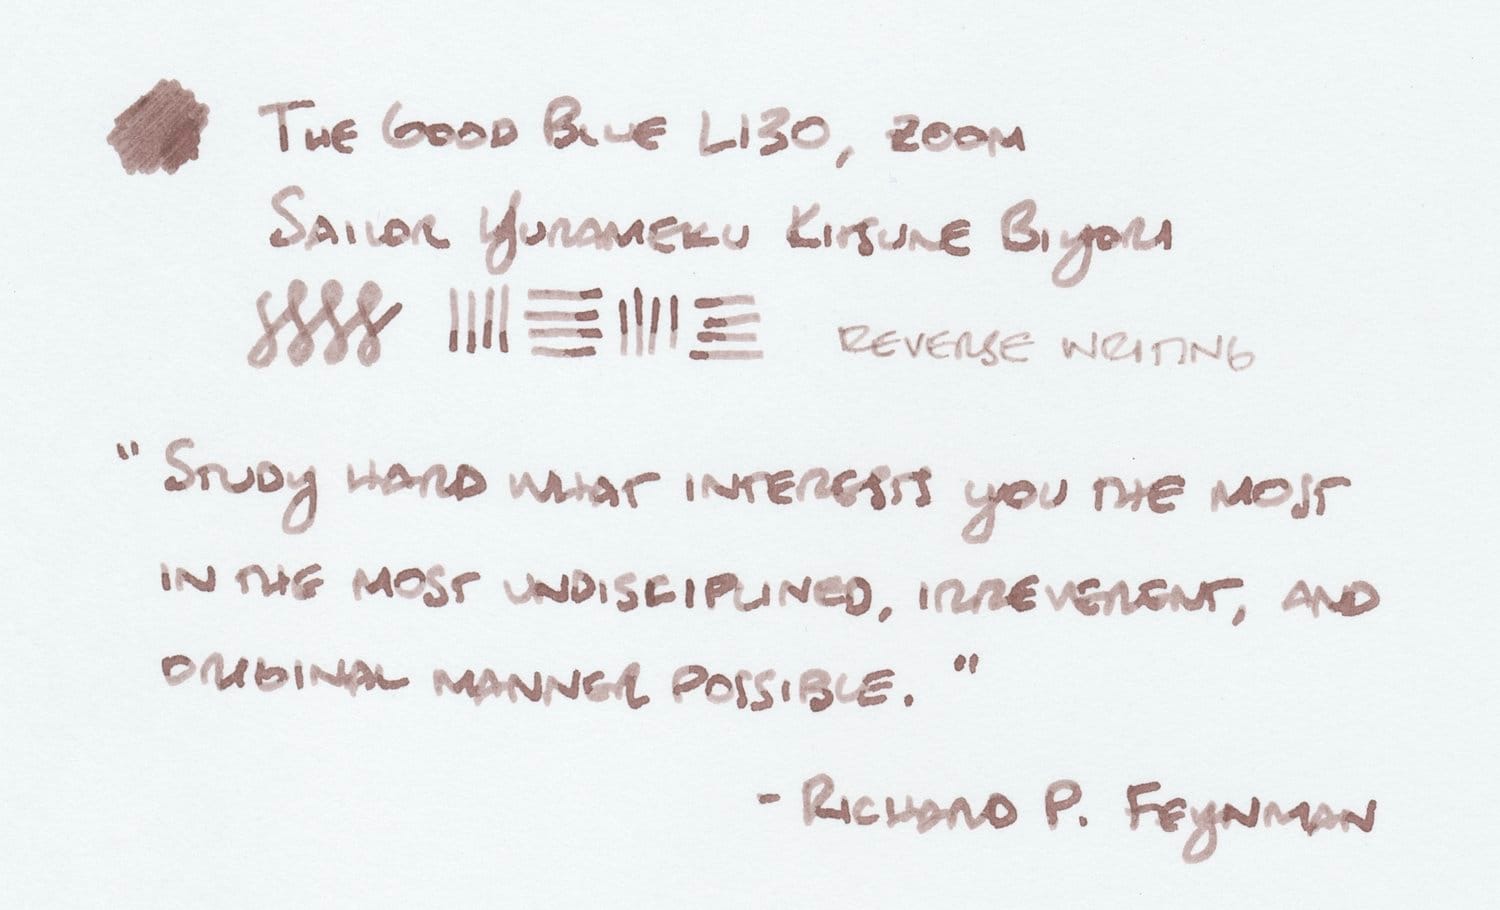 The Good Blue L130, zoom
Sailor Yurameku Kitsune Biyori
reverse writing
"Study hard what interests you the most
in the most undisciplined, irreverent, and
original manner possible."
- Richard P. Feynman